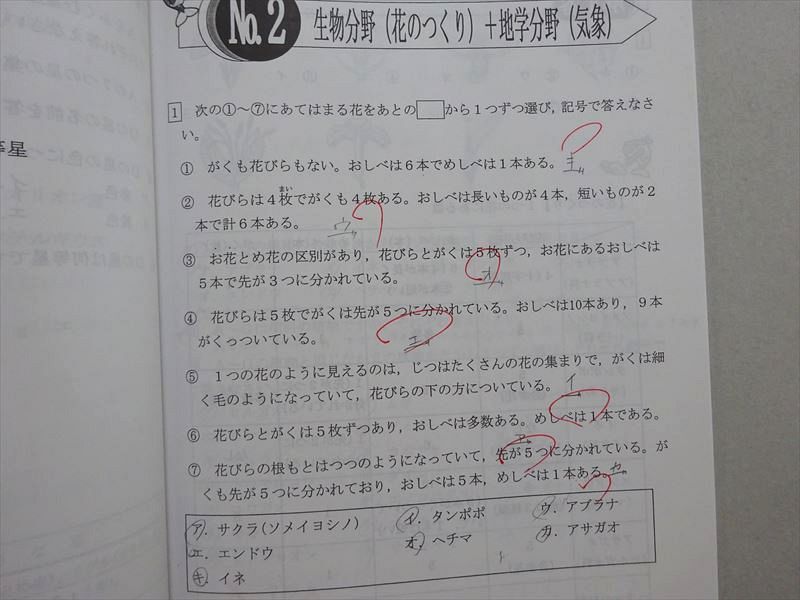 No.2 生物分野（花のつくり）＋地学分野（気象）
1 次の①～⑦にあてはまる花をあとの□から１つずつ選び，記号で答えなさ
い。
① がくも花びらもない。おしべは６本でめしべは１本ある。キ
② 花びらは４枚でがくも４枚ある。おしべは長いものが４本，短いものが２
まい
本で計６本ある。 ウ
③ お花とめ花の区別があり，花びらとがくは５枚ずつ，お花にあるおしべは
５本で先が３つに分かれている。 オ
④ 花びらは５枚でがくは先が５つに分かれている。おしべは10本あり，９本
がくっついている。 エ
⑤ １つの花のように見えるのは，じつはたくさんの花の集まりで，がくは細
く毛のようになっていて，花びらの下の方についている。 イ
⑥ 花びらとがくは５枚ずつあり，おしべは多数ある。めしべは１本である。
ア
⑦ 花びらの根もとはつつのようになっていて，先が５つに分かれている。が
くも先が５つに分かれており，おしべは５本，めしべは１本ある。カ
ア．サクラ（ソメイヨシノ） イ．タンポポ ウ．アブラナ
エ．エンドウ オ．ヘチマ カ．アサガオ
キ．イネ
等星
イ
エ